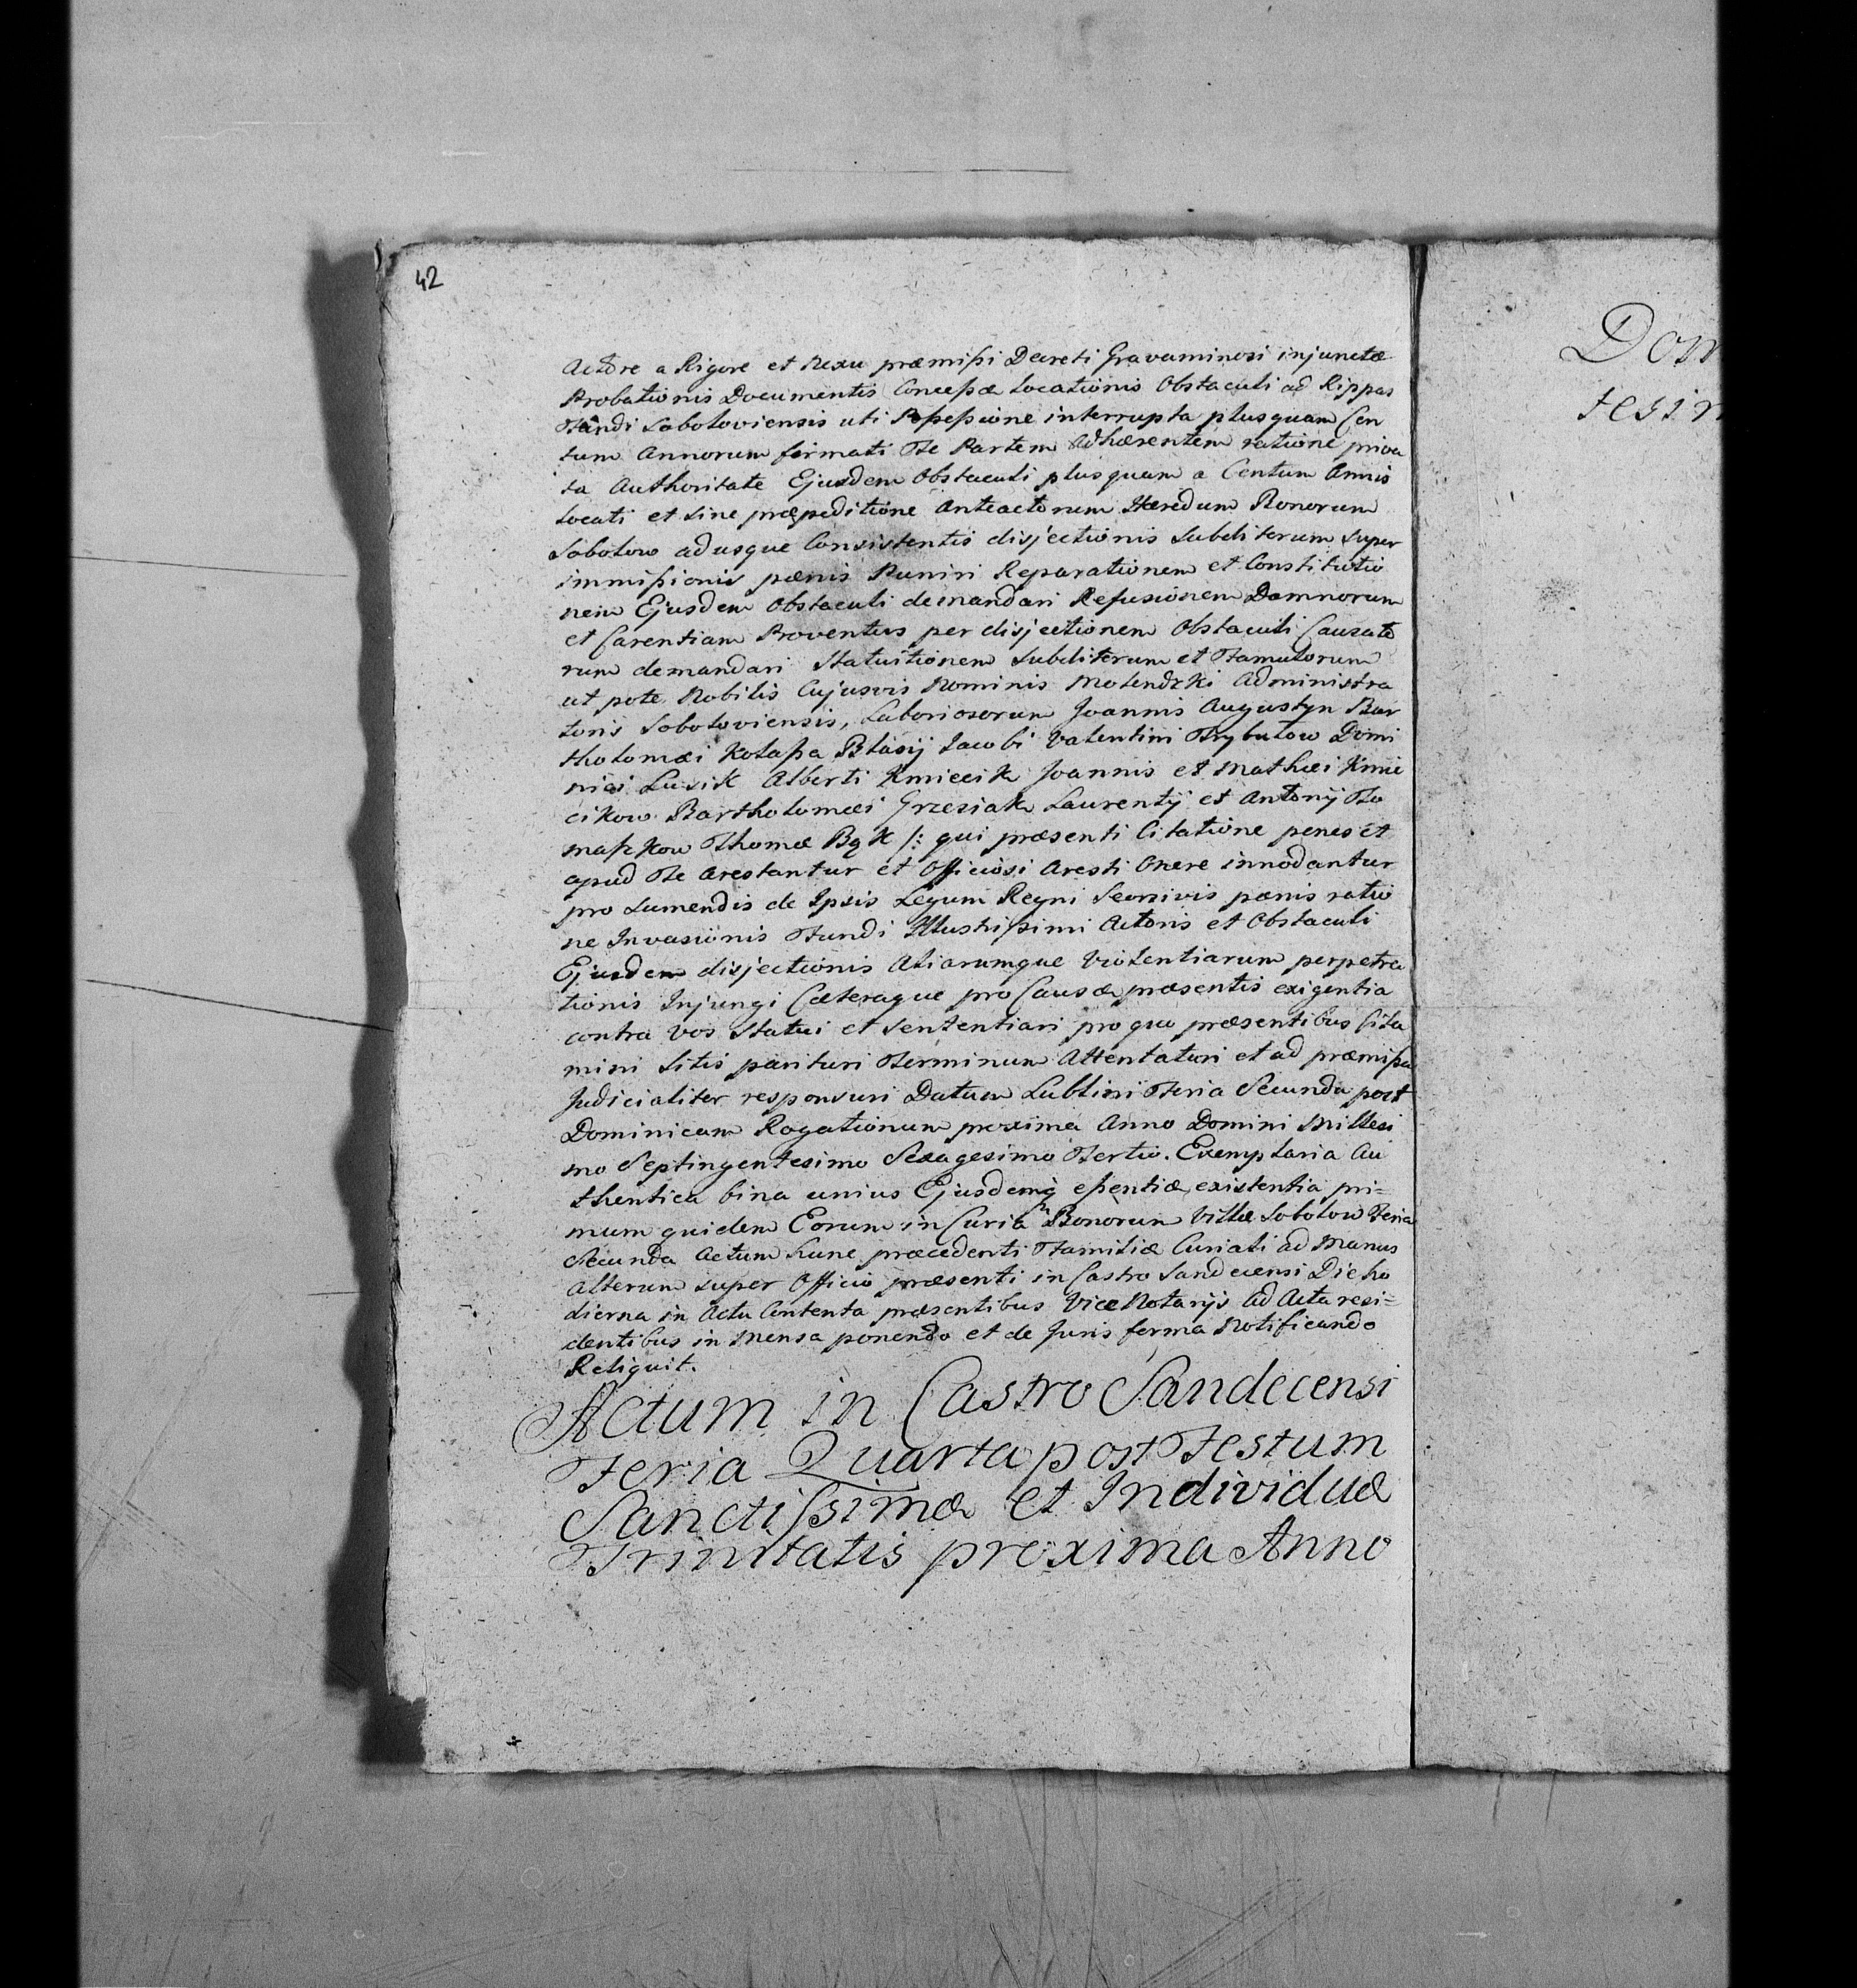 42
Actore a Rigore et Nexu præmissi Decreti Gravaminosi injunctæ
Probationis Documentis Concessæ Locationis Obstaculi ad Rippas
Fundi Soboloviensis uti Possessione interrupta plusquam Cen
tum Annorum firmati Te Partem Adhærentem ratione priva
ta Authoritate Ejusdem Obstaculi plusquam a Centum Annis
Locati et sine præpeditione Anteactorum Hæredum Bonorum
Sobolow adusque Consistentis disjectionis Subditorum super
immissionis pænis Puniri Reparationem et Constitutio
nem Ejusdem Obstaculi demandari Refusionem Damnorum
et Carentiam Proventus per disjectionem Obstaculi Causato
rum demandari Statuitionem Subditorum et Famulorum
ut pote Nobilis Cujusvis Nominis Molendzki Administra
toris Soboloviensis, Laboriosorum Joannis Augustyn Bar
tholomæi Kolassa Blasij Jacobi Valentini Trybulow Domi
nici Lusik Alberti Kmiecik Joannis et Mathæi Kmie
cikow Bartholomæi Grzesiak Laurentij et Antonij To
masskow Thomæ Bąk /: qui præsenti Citatione penes et
apud Te Arestantur et Officiosi Aresti Onere innodantur
pro Lumendis de Ipsis Legum Regni pænis ratio
ne Invasionis Fundi Illustrissimi Actoris et Obstaculi
Ejusdem disjectionis Aliarumque Violentiarum perpetra
tionis Injungi Cæteraque pro Causæ præsentis exigentia
contra Vos Statui et Sententiari pro quo præsentibus Cita
mini Sitis parituri Terminum Attentaturi et ad præmissa
Judicialiter responsuri Datum Lublini Feria Secunda post
Dominicam Rogationum proxima Anno Domini Millesi
mo Septingentesimo Sexagesimo Tertio. Exemplaria Au
thentica bina unius Ejusdemq essentiæ, existentia pri=
mum quidem Eorum in Curia Bonorum Villæ Sobolow Feria
Secunda Actum hunc præcedenti Familiæ Curiali ad Manus
Alterum super Officio præsenti in Castro Sandecensi Die ho
dierna in Actu Contenta præsentibus Vice Notarijs ad Acta resi=
dentibus in Mensa ponendo et de Juris forma Notificando
Reliquit.
Actum in Castro Sandecensi
Feria Quarta post Festum
Sanctissimæ et Individuæ
Trinitatis proxima Anno
Dom
tesim